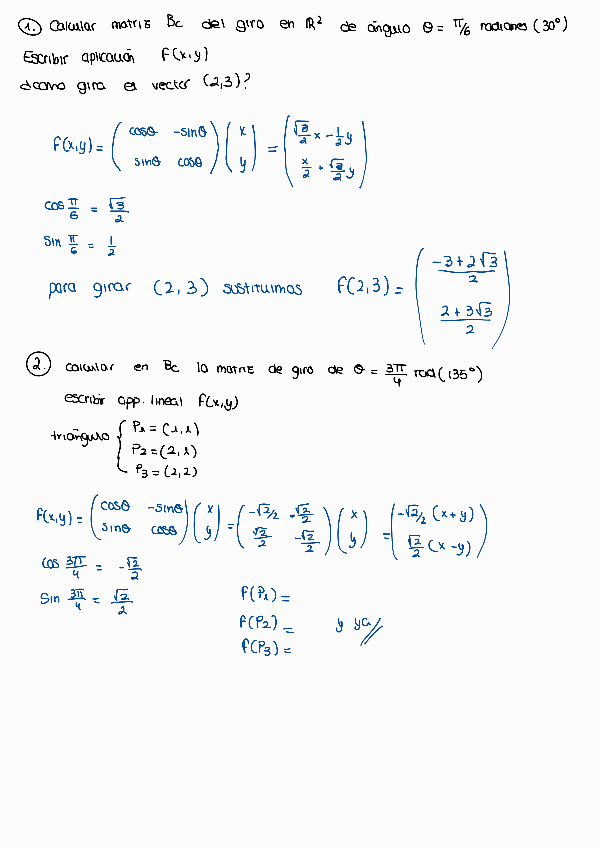 1. Calcular matriz Bc del giro en ℝ² de ángulo θ = π/6 radianes (30°)
Escribir aplicación F(x,y)
¿cómo gira el vector (2,3)?
F(x,y) = ( cosθ -sinθ ; sinθ cosθ ) ( x ; y ) = ( √3/2 x - 1/2 y ; x/2 + √3/2 y )
cos π/6 = √3/2
sin π/6 = 1/2
para girar (2,3) sustituimos F(2,3) = ( (-3+2√3)/2 ; (2+3√3)/2 )
2. Calcular en Bc la matriz de giro de θ = 3π/4 rad (135°)
escribir app. lineal F(x,y)
triángulo { P1 = (1,1)
P2 = (2,1)
P3 = (2,2)
F(x,y) = ( cosθ -sinθ ; sinθ cosθ ) ( x ; y ) = ( -√2/2 -√2/2 ; √2/2 -√2/2 ) ( x ; y ) = ( -√2/2 (x+y) ; √2/2 (x-y) )
cos 3π/4 = -√2/2
sin 3π/4 = √2/2
F(P1) =
F(P2) = y ya//
F(P3) =